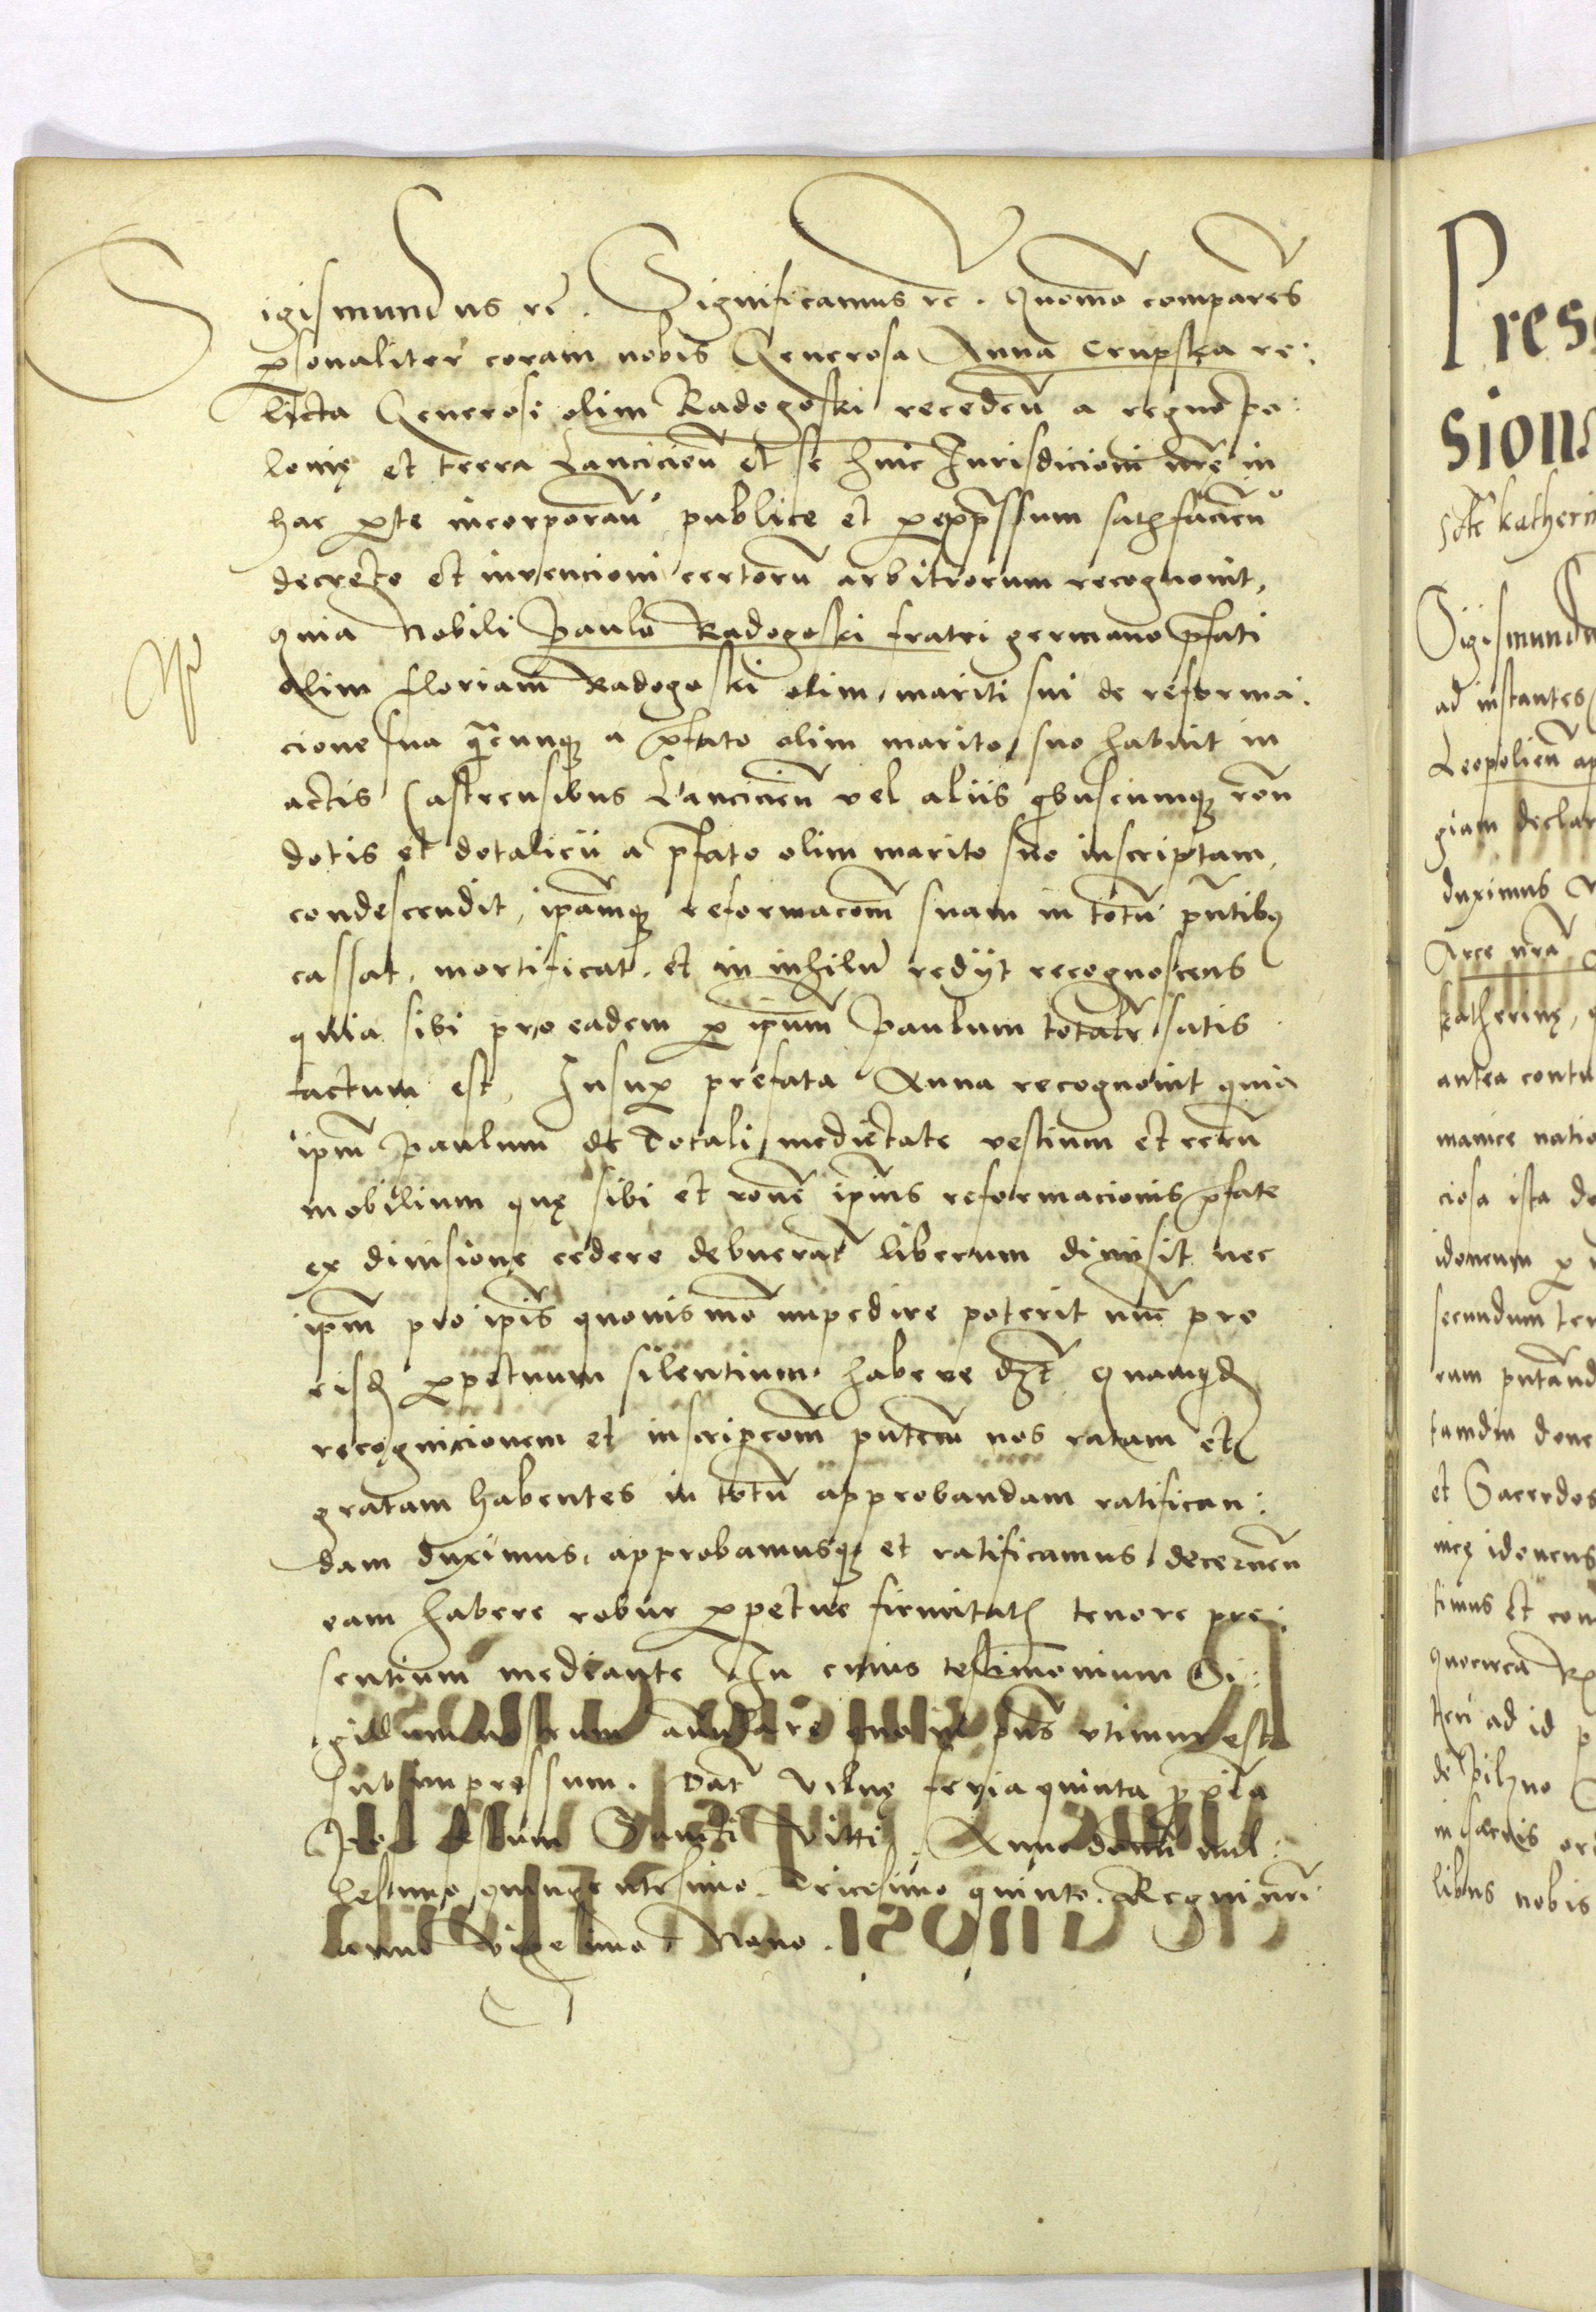 Sigismundus rc̄. Significamus rc̄. Quomo comparēs
ꝑsonaliter coram nobis Generosa Anna Crupska re:
licta Generosi olim Radogoski recedeñ a regno po:
lonię et terra Lancicieñ et se huic Jurisdicioni nrę in
hac ꝑte incorporañ publice et ꝑ expssum satisfacieñ
decreto et invencioni certorũ arbitrorum recognovit,
quia Nobili Paulo Radogoski fratri germano pfati
olim Floriani Radogoski olim mariti sui de reforma:
cione sua qcunqꝫ a pfato olim marito suo habuit in
actis Castrensibus Lancicieñ vel aliis qbuscumqꝫ roñ
dotis et dotalicii a pfato olim marito suo inscriptam,
condescendit, ipamqꝫ reformacom̄ suam in totũ pñtibꝫ
cassat, mortificat, et in nihilũ redijt recognoscens
quia sibi pro eadem ꝑ ipum Paulum totalr satis
factum est, Insuꝑ prefata Anna recognovit quia
ipm̄ Paulum de totali medietate vestium et rerũ
mobilium quę sibi et rone ipius reformacionis pfate
ex divisione cedere debuerat liberum dimisit nec
ipm̄ pro ipis quovismo impedire poterit nuc pro
eisd ꝑpetuum silentium habere dꝫt Quamqd
recognicionem et inscripcom̄ pñtem nos ratam et
gratam habentes in totũ approbandam ratifican:
dam duximus, approbamusqꝫ et ratificamus, decerneñ
eam habere robur ꝑpetue firmitatꝭ tenore pre:
sentium mediante In cuius testimonium Si:
gillum nostrum anulare quo in pñs utimur est
subimpressum. Dat̄ Vilnę feria quinta pxĩa
Post festum Sancti Vitti, Anno domi mil:
lesimo quingentesimo. Tricesimo quinto. Regni nri
anno Vigesimo Nono.
Pres
sion
ste katherin
Sigismundu
ad instantes
Leopolieñ ap
giam declar
duximus
Arce nra
katherinę,
antea contu
manice natio
ciosa ista de
idoneum ꝑ
secundum ten
eam pñtand
tamdiu donec
et Sacerdos
nicę idoneus
timus et con
quocirca
teñ ad id p
de Pilzno
in sacris ord
libus nobis